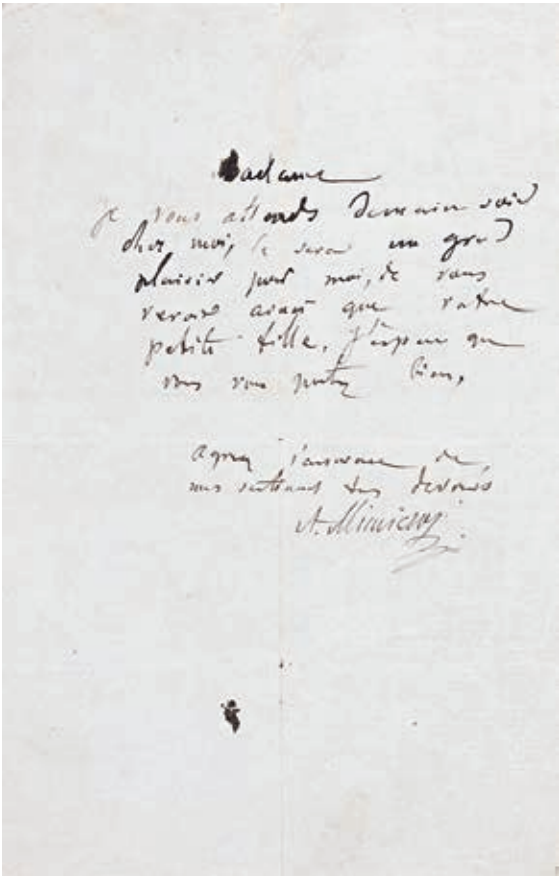 Madame
je vous attends demain soir
chez moi, ce sera un grand
plaisir pour moi, de vous
revoir ainsi que votre
petite fille. J'espère que
vous vous portez bien,
agréez l'assurance de
mes sentiments très dévoués
A.